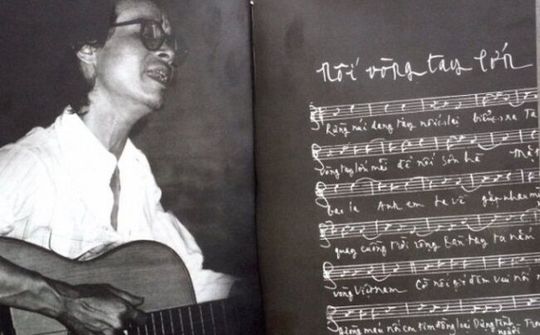 nối vòng tay lớn
Rừng núi dang tay nối lại biển xa Ta
vòng tay lớn mãi để nối Sơn hà
bao la Anh em ta về gặp nhau
quay cuồng trời rộng bàn tay ta nắm
vòng Việt nam Cờ nối gió đêm vui nối
Dòng máu nối con tim đồng loại Dựng tình người Trong